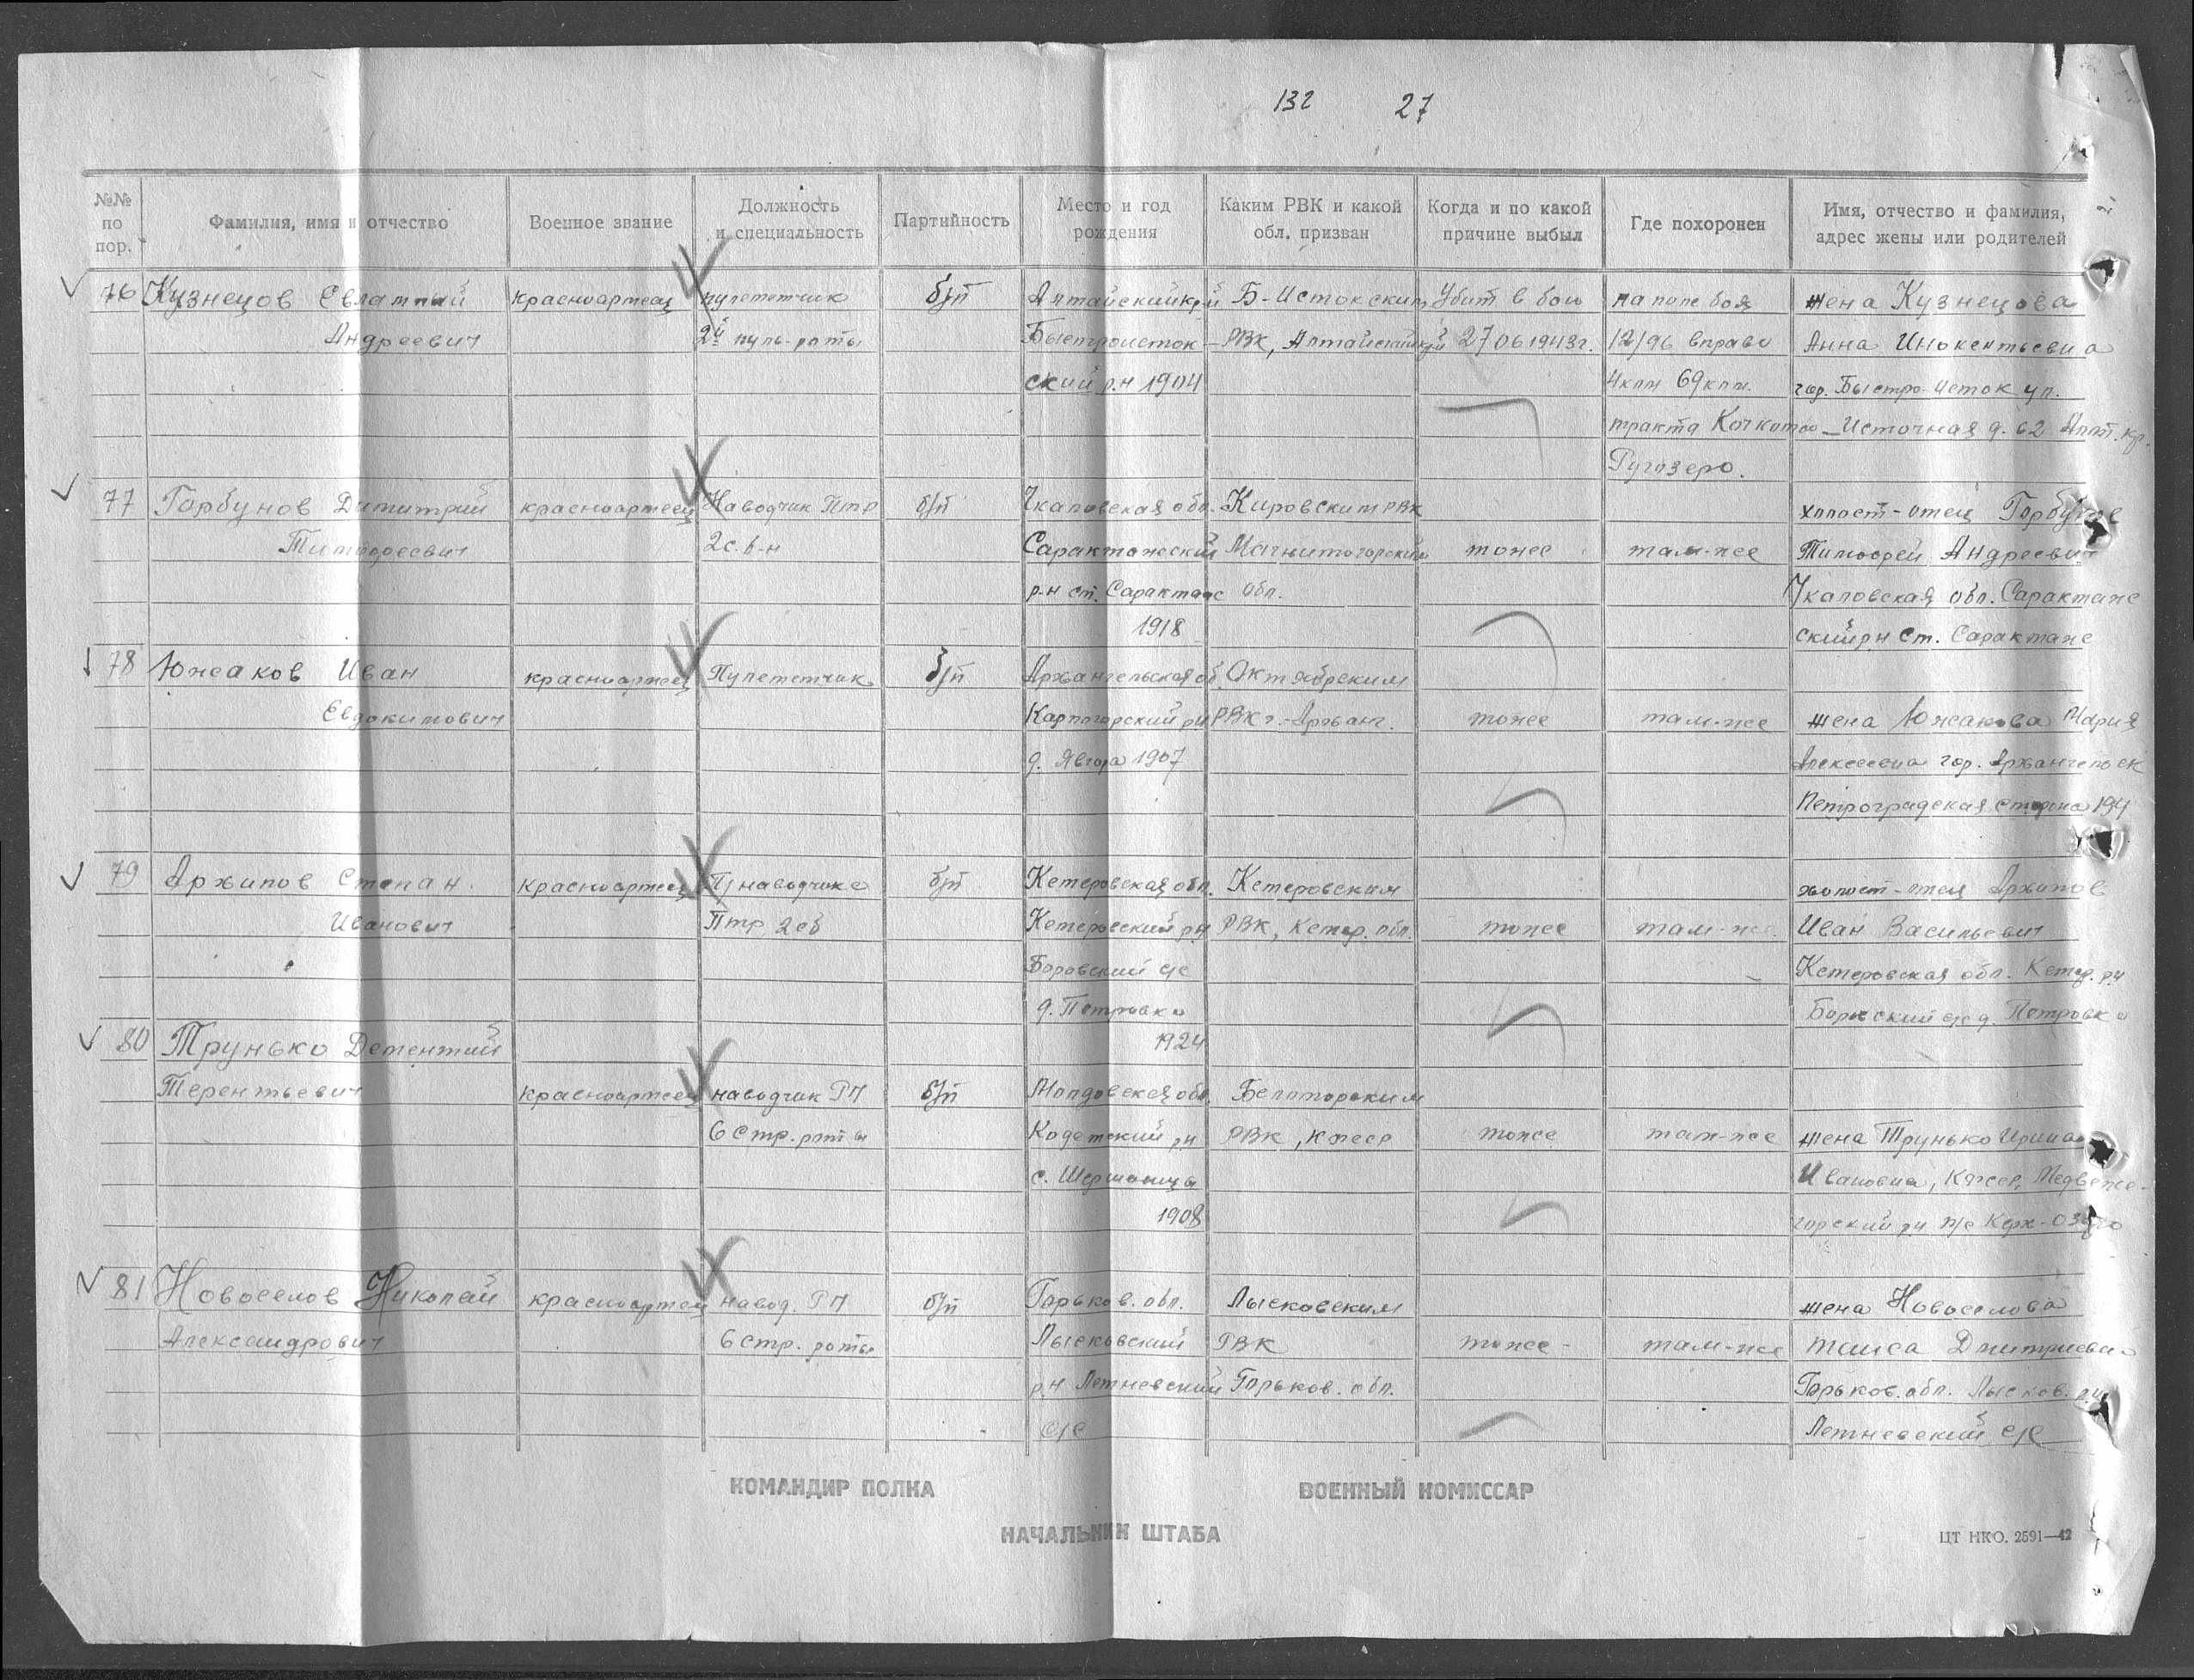 132 27
№№ по пор.
Фамилия, имя и отчество
Военное звание
Должность и специальность
Партийность
Место и год рождения
Каким РВК и какой обл. призван
Когда и по какой причине выбыл
Где похоронен
Имя, отчество и фамилия, адрес жены или родителей
76 Кузнецов Евлатий красноармеец пулеметчик б/п Алтайский край Б-Истокским Убит в бою на поле боя жена Кузнецова
Андреевич 2й пуль-роты Быстроисток- РВК, Алтайский край 27 06 1943г. 12/96 вправо Анна Инокентьевна
ский р.н 1904 4клм 69клм. гор. Быстро-Исток ул.
тракта Кочкома- Источная д. 62 Алт. кр.
Ругозеро.
77 Горбунов Димитрий красноармеец Наводчик Птр б/п Чкаловская обл. Кировским РВК холост-отец Горбунов
Тимофеевич 2с.б-н Саракташский Магнитогорским тоже там-же Тимофей Андреевич
р-н ст. Саракташ обл. Чкаловская обл. Саракташ
1918 ский рн ст. Саракташ
78 Южаков Иван красноармеец Пулеметчик б/п Архангельская об. Октябрьским
Евдокимович Карпогорский рн РВК г.-Арханг. тоже там-же жена Южакова Мария
д. Явгора 1907 Алексеевна гор. Архангельск
Петроградская сторона 194
79 Архипов Степан красноармеец П/наводчика б/п Кемеровская обл. Кемеровским холост-отец Архипов
Иванович Птр 2сб Кемеровский рн РВК, Кемер. обл. тоже там-же Иван Васильевич
Боровский с/с Кемеровская обл. Кемер. рн
д. Петровка с/с д. Петровка
80 Трунько Дементий 1924
Терентьевич красноармеец наводчик РП б/п Молдовская обл. Беломорским
6 стр. роты Кодемский рн РВК, кфсср тоже там-же жена Трунько Ирина
с. Ивановна, Кфсср, Медвеже-
1908 горский рн
81 Новоселов Николай красноармеец навод. РП б/п Горьков. обл. Лысковским жена Новоселова
Александрович 6 стр. роты Лысковский РВК тоже- там-же Таиса Дмитриевна
рн Летневский Горьков. обл. Горьков. обл. Лысков. рн
с/с Летневский с/с
КОМАНДИР ПОЛКА ВОЕННЫЙ КОМИССАР
НАЧАЛЬНИК ШТАБА
ЦТ НКО. 2591—42